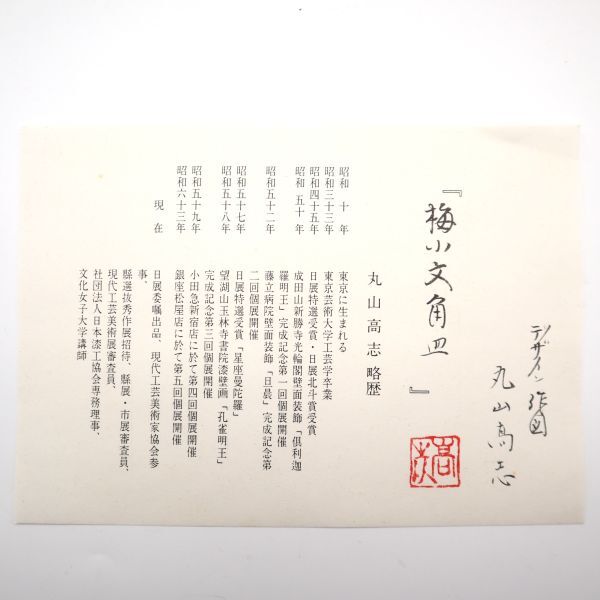 デザイン作図
丸山高志
『梅小文角皿』
丸山高志略歴
昭和十年 東京に生まれる
昭和三十三年 東京芸術大学工芸学卒業
昭和四十五年 日展特選受賞・日展北斗賞受賞
昭和五十年 成田山新勝寺光輪閣壁面装飾「倶利迦
羅明王」完成記念第一回個展開催
昭和五十二年 藤立病院壁面装飾「旦晨」完成記念第
二回個展開催
昭和五十七年 日展特選受賞「星座曼陀羅」
昭和五十八年 望湖山玉林寺書院漆壁画「孔雀明王」
完成記念第三回個展開催
昭和五十九年 小田急新宿店に於て第四回個展開催
昭和六十三年 銀座松屋店に於て第五回個展開催
現在 日展委嘱出品、現代工芸美術家協会参
事、
縣選抜秀作展招待、縣展・市展審査員、
現代工芸美術展審査員、
社団法人日本漆工協会専務理事、
文化女子大学講師
高志